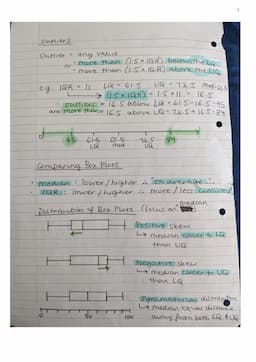 Outliers
Outlier = any value
or • more than (1.5 × IQR) below the LQ
• more than (1.5 × IQR) above the UQ
e.g. IQR = 11 LQ = 61.5 UQ = 72.5
→ (1.5 × IQR) = 1.5 × 11 = 16.5
outliers = 16.5 below LQ = 61.5 - 16.5 = 45
are more than 16.5 above UQ = 72.5 + 16.5 = 89
45 61.5 65.5 72.5 89
LQ med UQ
Comparing Box Plots
• Median: lower/higher ∴ on average
• IQR: lower/higher ∴ more/less consistent
Distribution of Box Plots (focus on median
Positive skew
↳ median closer to LQ
than UQ
Negative skew
↳ median closer to UQ
than LQ
Symmetrical distribution
↳ median equal distance
away from both LQ & UQ
0 50 100